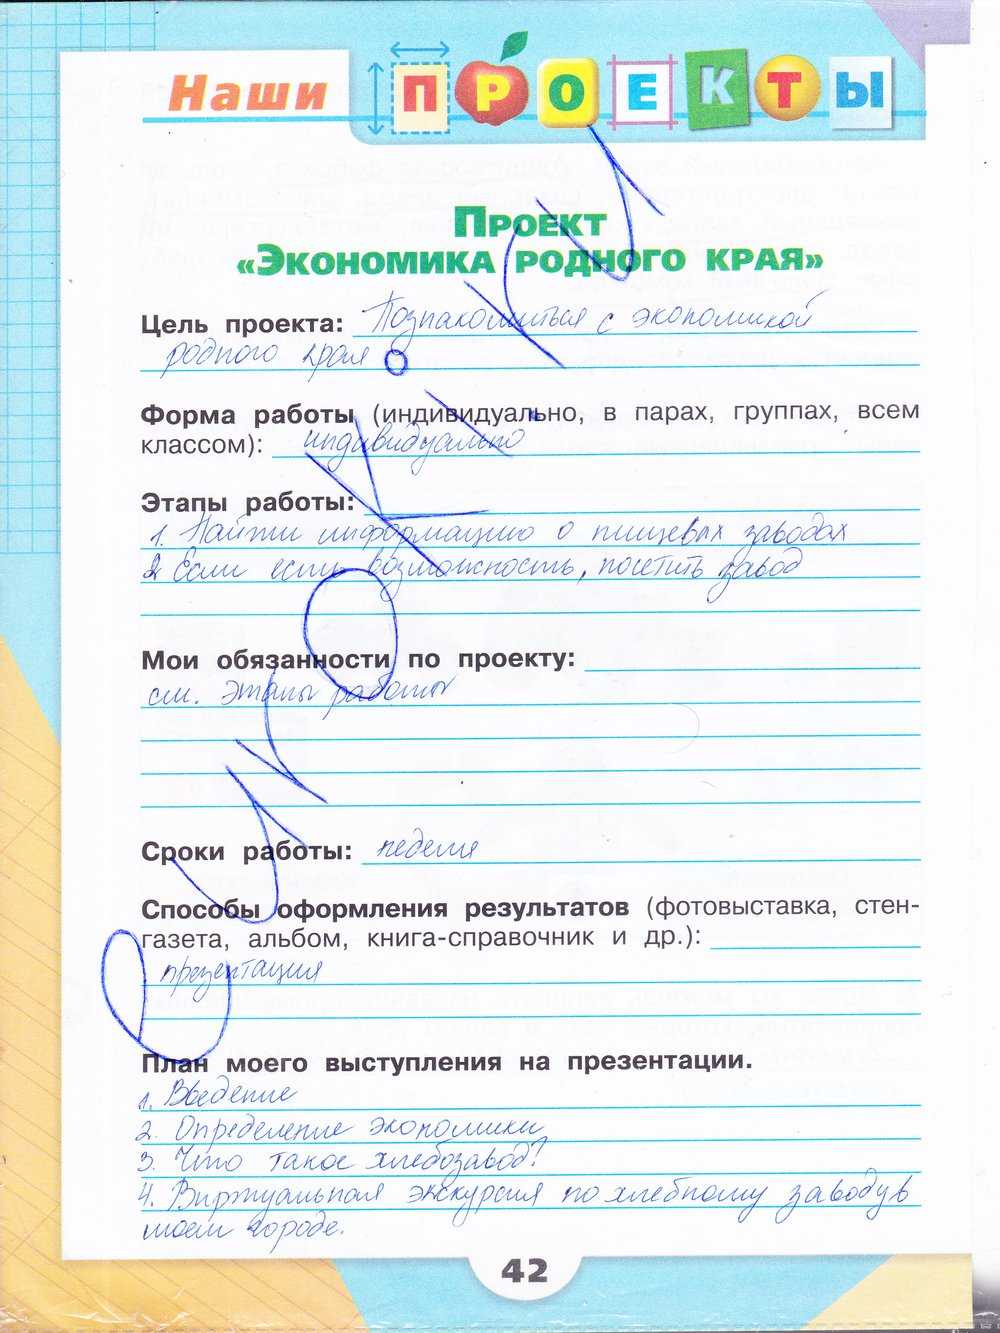 Наши ПРОЕКТЫ
ПРОЕКТ
«ЭКОНОМИКА РОДНОГО КРАЯ»
Цель проекта: Познакомиться с экономикой
родного края
Форма работы (индивидуально, в парах, группах, всем
классом): индивидуально
Этапы работы:
1. Найти информацию о пищевых заводах
2. Если есть возможность, посетить завод
Мои обязанности по проекту:
см. Этапы работы
Сроки работы: неделя
Способы оформления результатов (фотовыставка, стен-
газета, альбом, книга-справочник и др.):
презентация
План моего выступления на презентации.
1. Введение
2. Определение экономики
3. Что такое хлебозавод?
4. Виртуальная экскурсия по хлебному заводу в
моем городе.
42